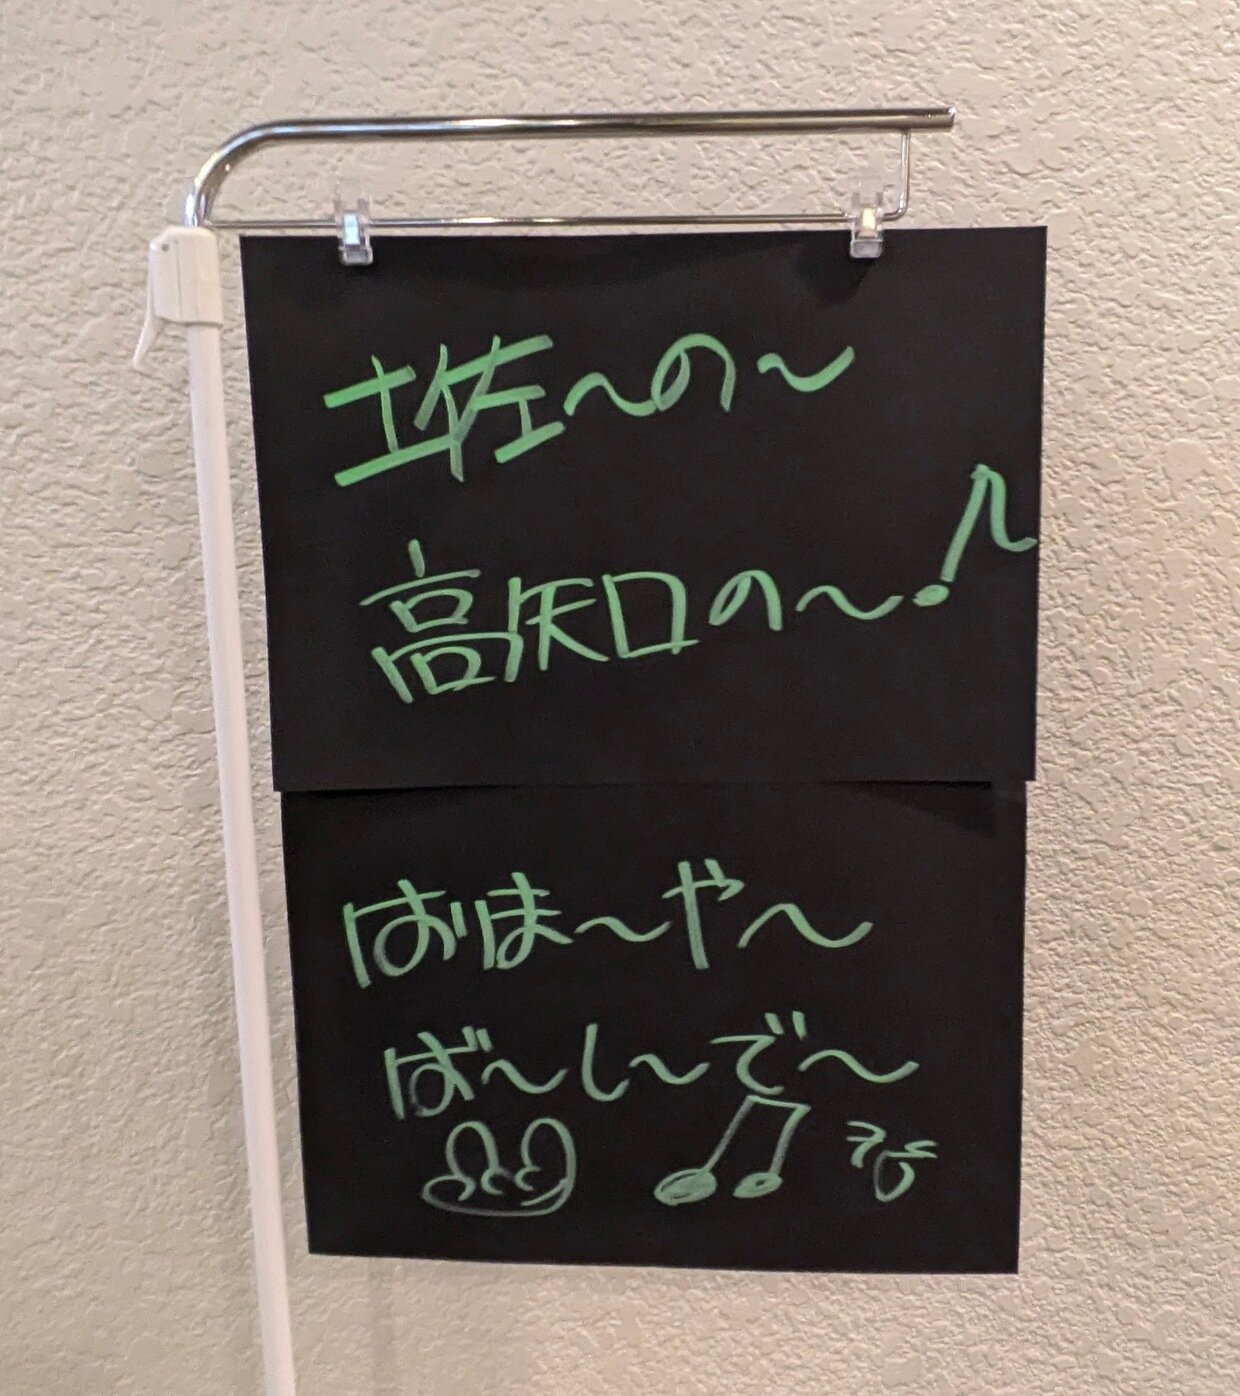 土佐〜の〜
高知の〜♪
はりま〜や〜
ば〜し〜で〜